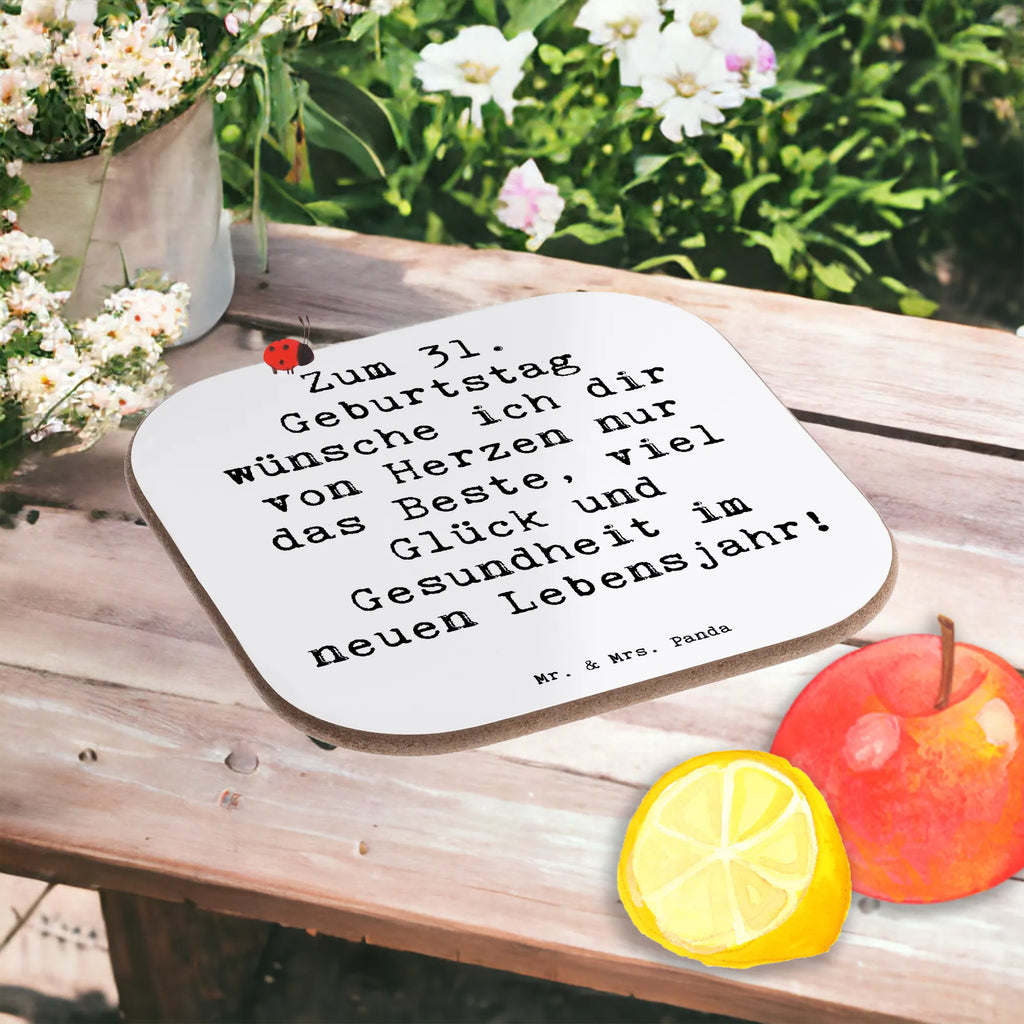 Zum 31.
Geburtstag
wünsche ich dir
von Herzen nur
das Beste, viel
Glück und
Gesundheit im
neuen Lebensjahr!
Mr. & Mrs. Panda